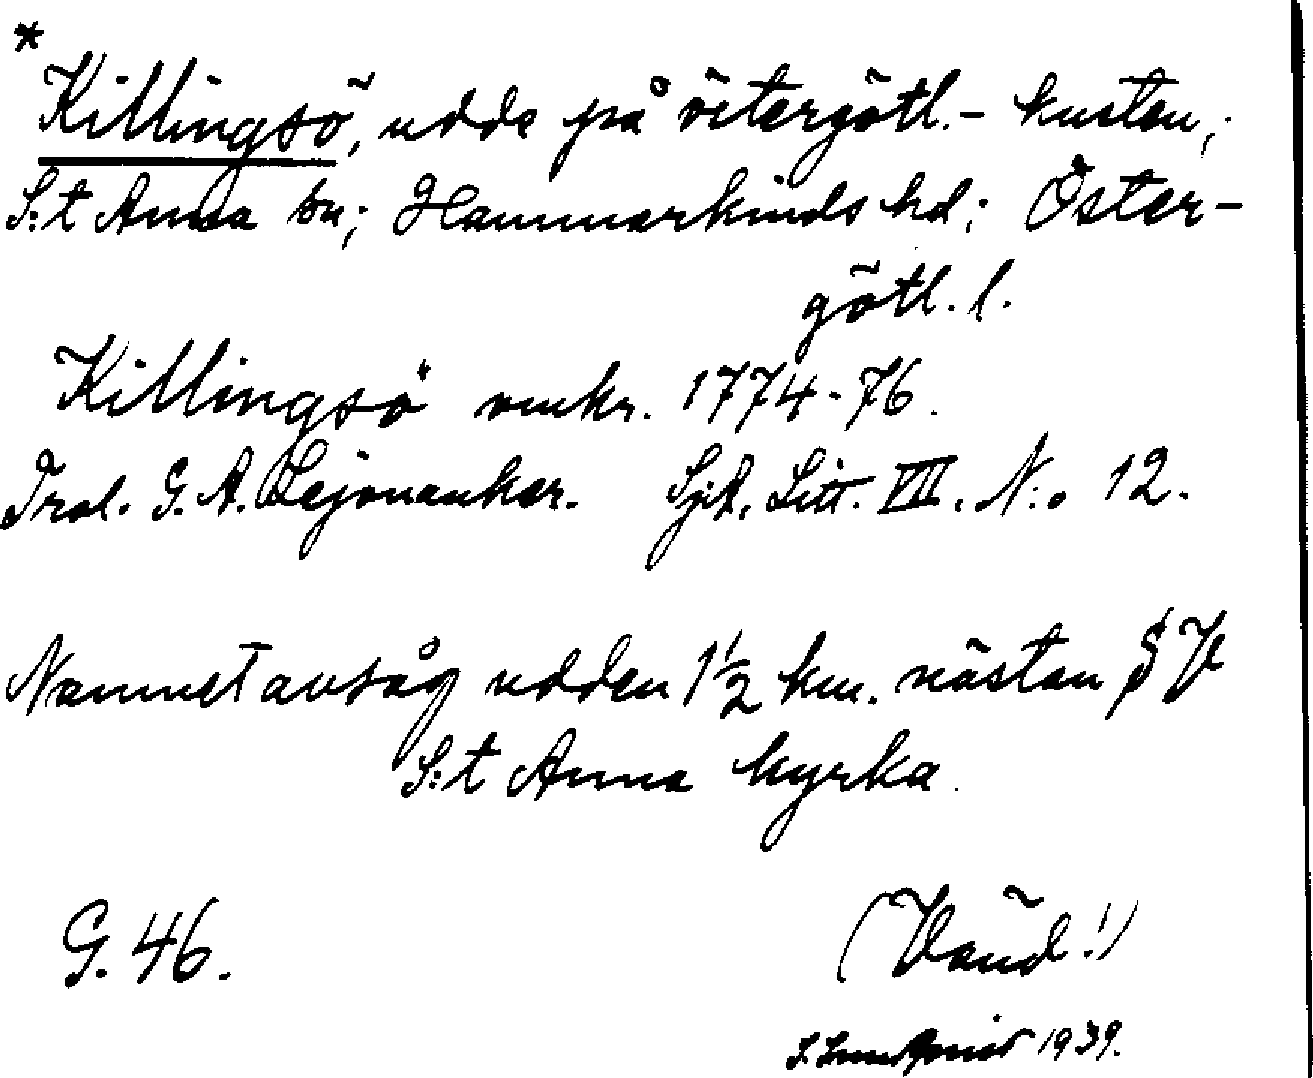 *
Killingsö, udde på östergötl.- kusten;
S:t Anna sn; Hammarkinds hd; Öster-
götl. l.
Killingsö omkr. 1774-76.
Trol. G. A. Lejonanker. Sjk. Litt. VII. N:o 12.
Namnet avsåg udden 1½ km. nästan S V
S:t Anna kyrka.
G. 46.
(Vänd!)
S. Lundqvist 1939.